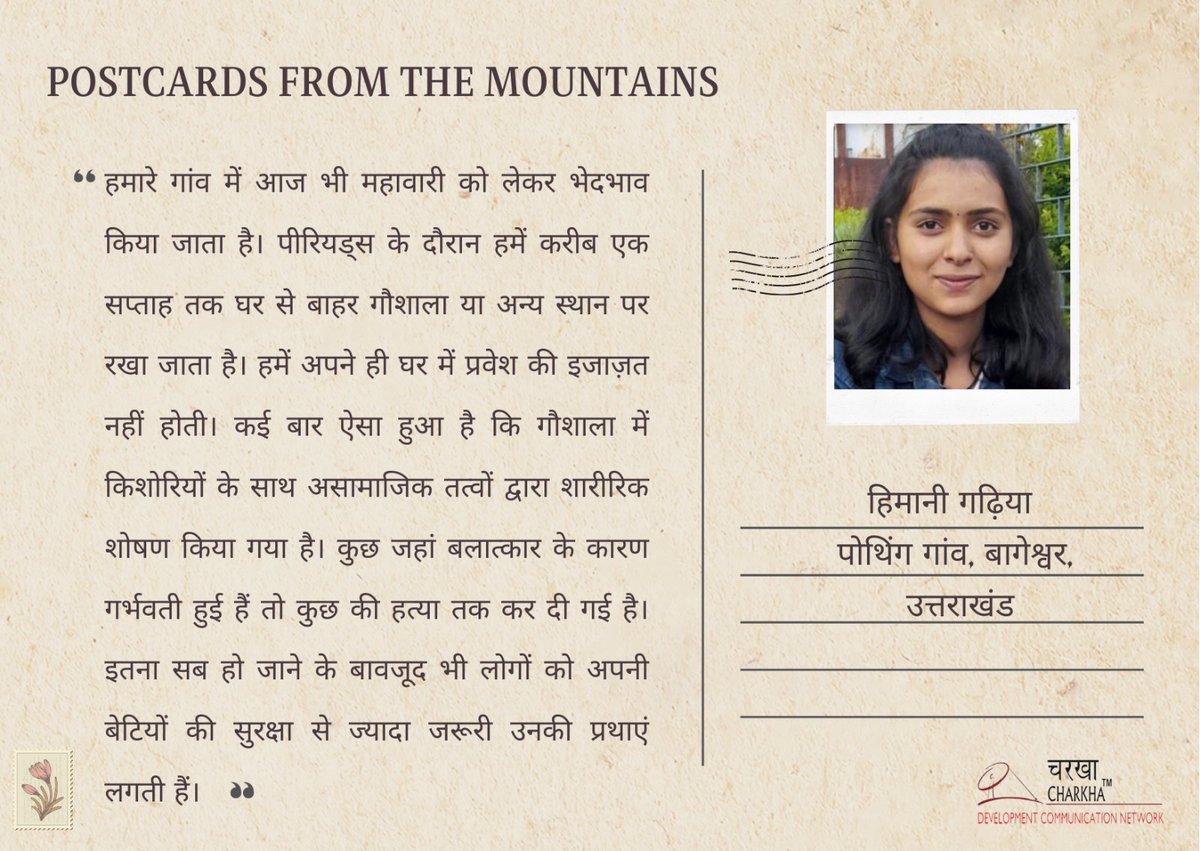 POSTCARDS FROM THE MOUNTAINS
“ हमारे गांव में आज भी महावारी को लेकर भेदभाव
किया जाता है। पीरियड्स के दौरान हमें करीब एक
सप्ताह तक घर से बाहर गौशाला या अन्य स्थान पर
रखा जाता है। हमें अपने ही घर में प्रवेश की इजाज़त
नहीं होती। कई बार ऐसा हुआ है कि गौशाला में
किशोरियों के साथ असामाजिक तत्वों द्वारा शारीरिक
शोषण किया गया है। कुछ जहां बलात्कार के कारण
गर्भवती हुई हैं तो कुछ की हत्या तक कर दी गई है।
इतना सब हो जाने के बावजूद भी लोगों को अपनी
बेटियों की सुरक्षा से ज्यादा जरूरी उनकी प्रथाएं
लगती हैं। ”
हिमानी गढ़िया
पोथिंग गांव, बागेश्वर,
उत्तराखंड
चरखा
CHARKHA™
DEVELOPMENT COMMUNICATION NETWORK